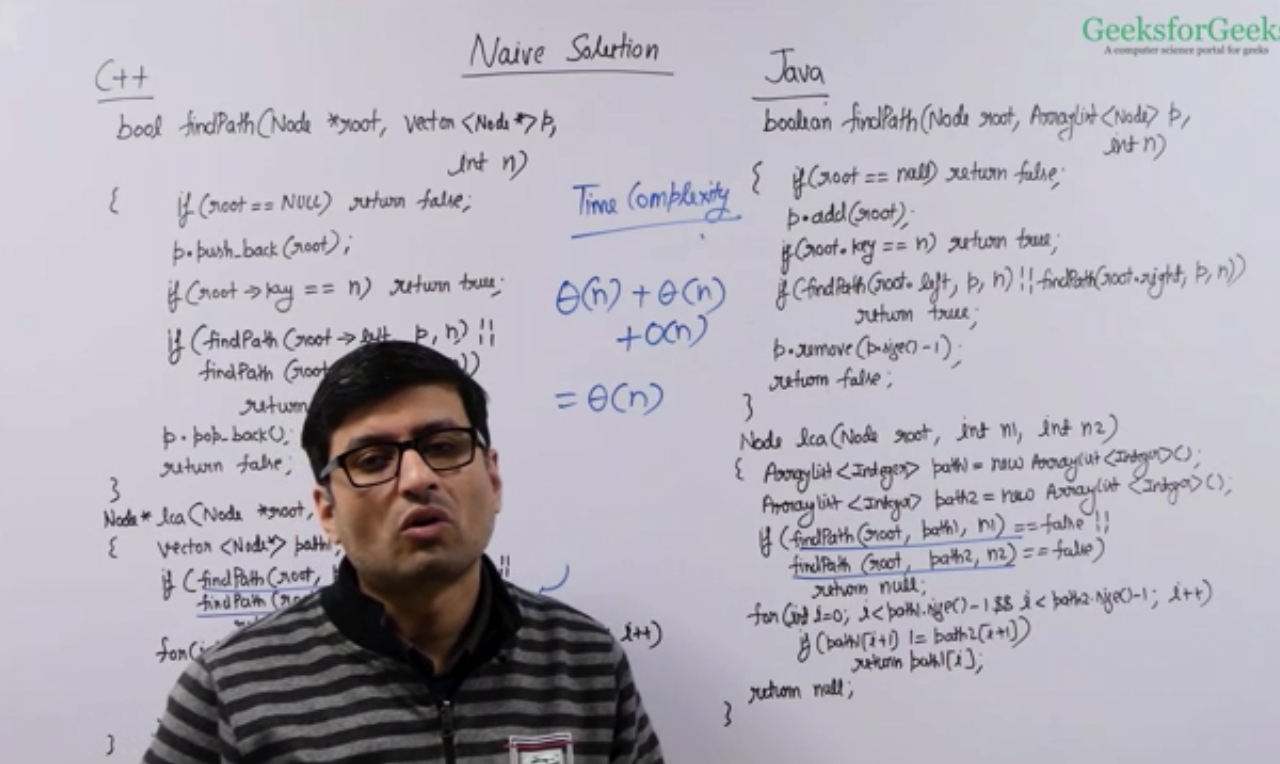 GeeksforGeeks
A computer science portal for geeks
Naive Solution
C++
bool findPath(Node *root, vector <Node*> p,
int n)
{ if (root == NULL) return false;
p.push_back(root);
if (root->key == n) return true;
if (findPath(root->left, p, n) ||
findPath (root
return
p.pop_back();
return false;
}
Node* lca(Node *root,
{ vector <Node*> path1
if (findPath(root,
findPath(ro
for(i
i++)
}
Time Complexity
θ(n) + θ(n)
+ O(n)
= θ(n)
Java
boolean findPath(Node root, ArrayList <Node> p,
int n)
{ if (root == null) return false;
p.add(root);
if(root.key == n) return true;
if (findPath(root.left, p, n) || findPath(root.right, p, n))
return true;
p.remove(p.size()-1);
return false;
}
Node lca(Node root, int n1, int n2)
{ ArrayList <Integer> path1 = new ArrayList <Integer>();
ArrayList <Integer> path2 = new ArrayList <Integer>();
if (findPath(root, path1, n1) == false ||
findPath (root, path2, n2) == false)
return null;
for(int i=0; i<path1.size()-1 && i<path2.size()-1; i++)
if (path1[i+1] != path2[i+1])
return path1[i];
return null;
}